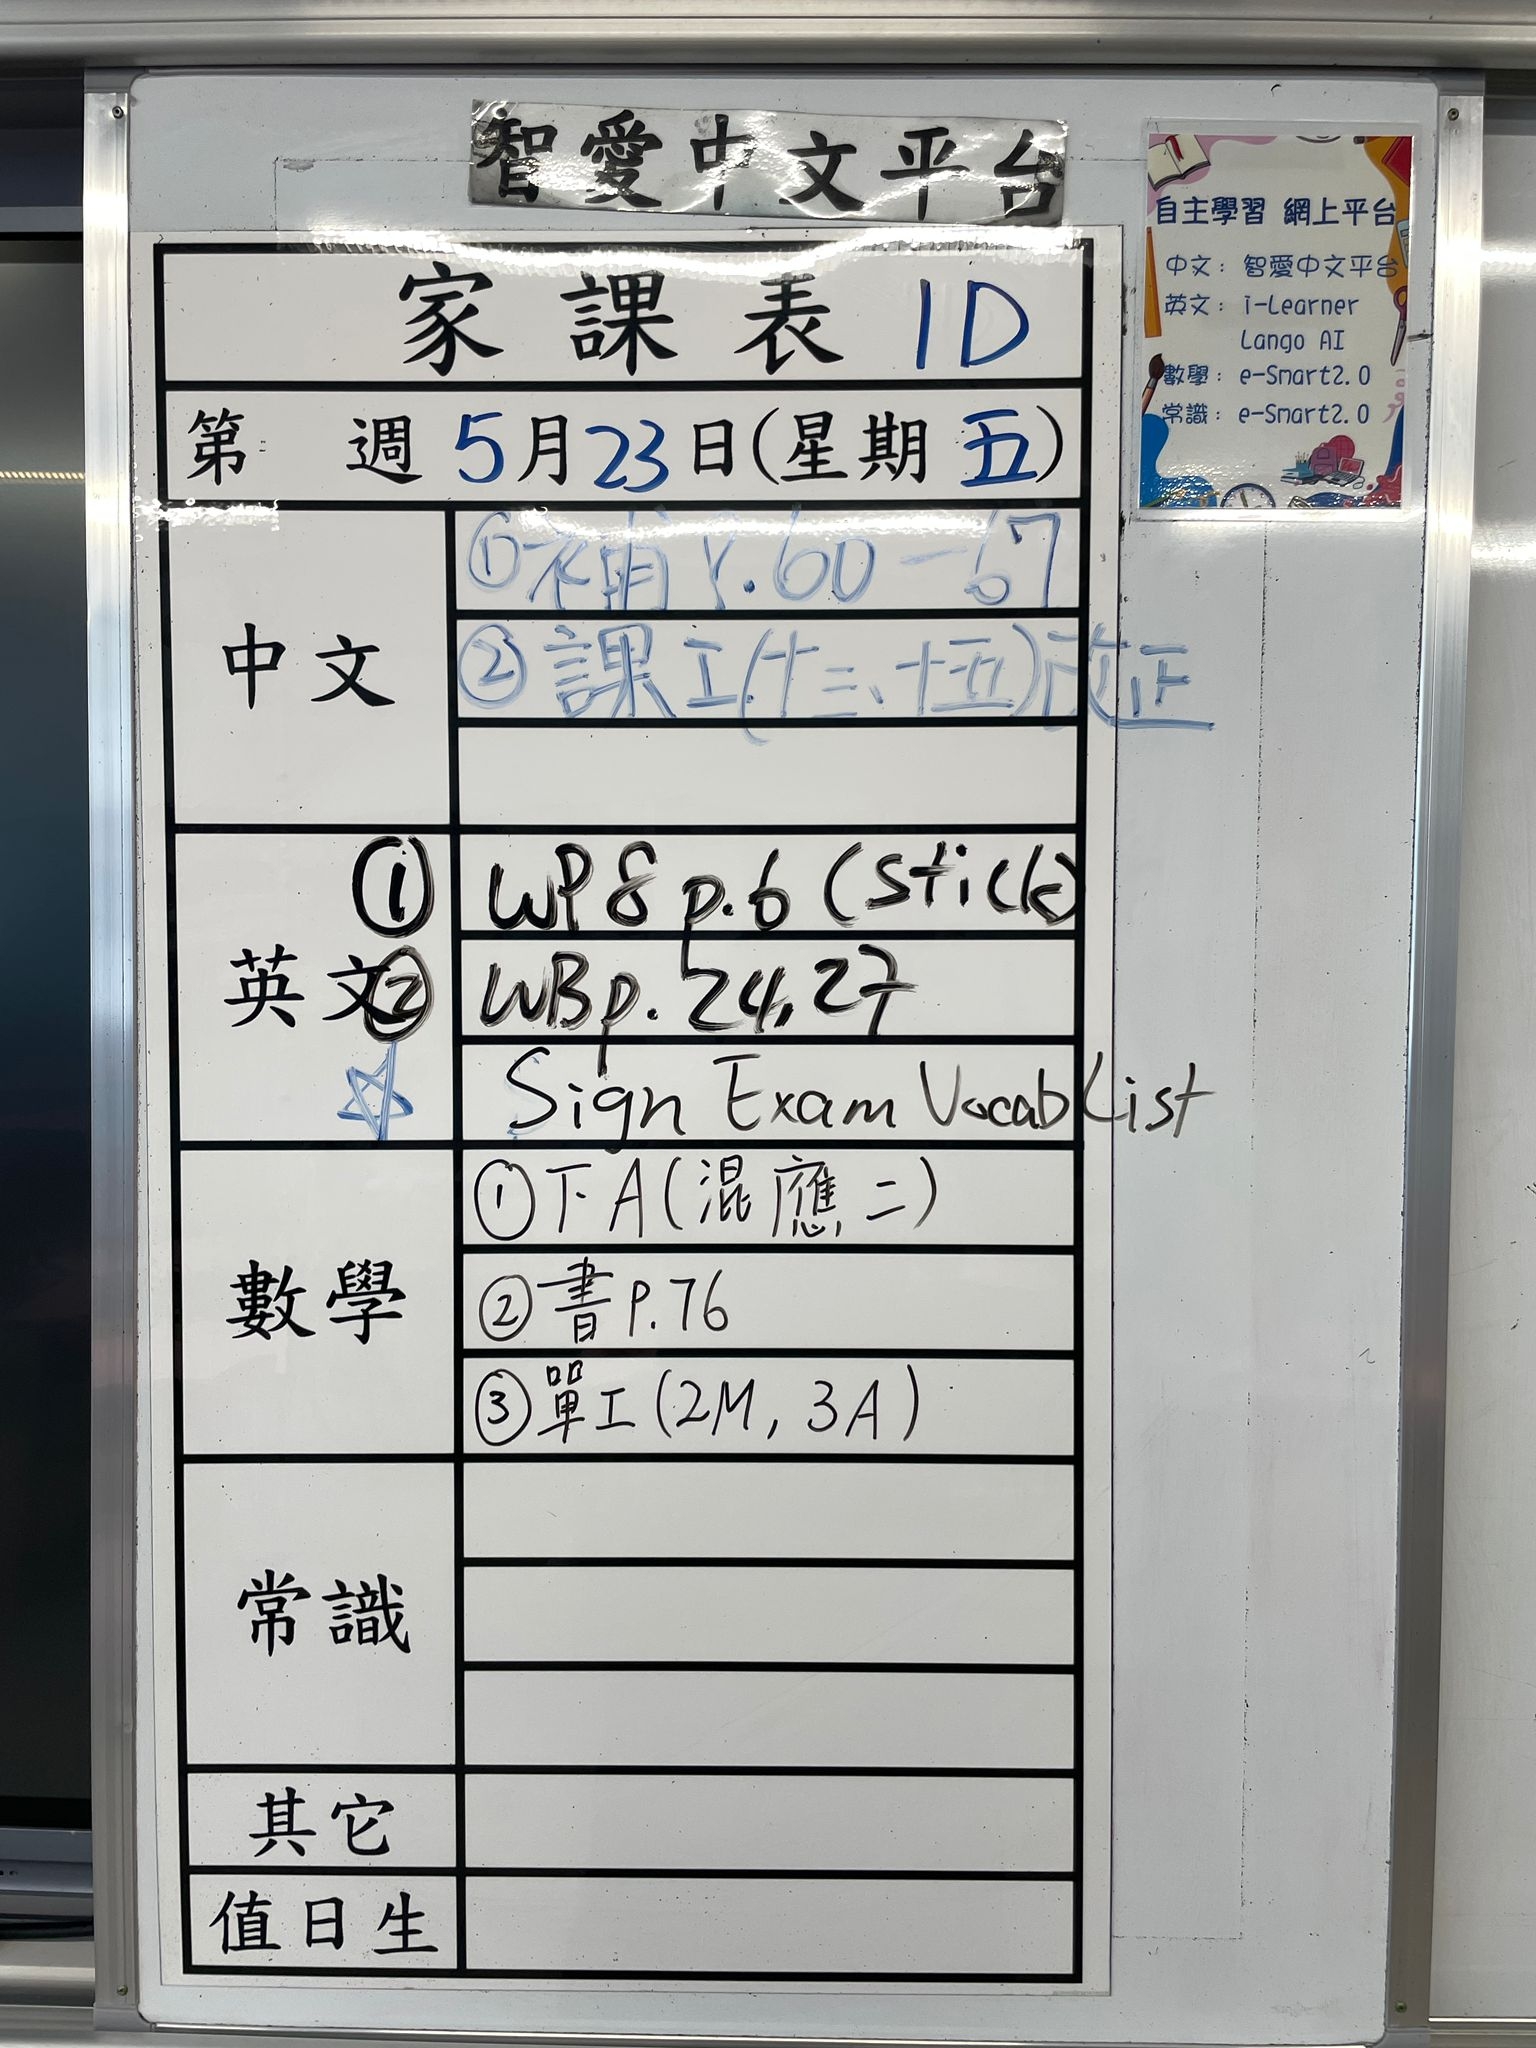 智愛中文平台
自主學習 網上平台
中文：智愛中文平台
英文：i-Learner
Lango AI
數學：e-Smart2.0
常識：e-Smart2.0
家課表 1D
第 週 5月23日(星期五)
中文
①補 P.60-67
②課工(十三、十五)改正
英文
① WP8 p.6 (stick)
② WB p. 24, 27
☆ Sign Exam Vocab List
數學
①下A(混應二)
②書P.76
③單工(2M, 3A)
常識
其它
值日生